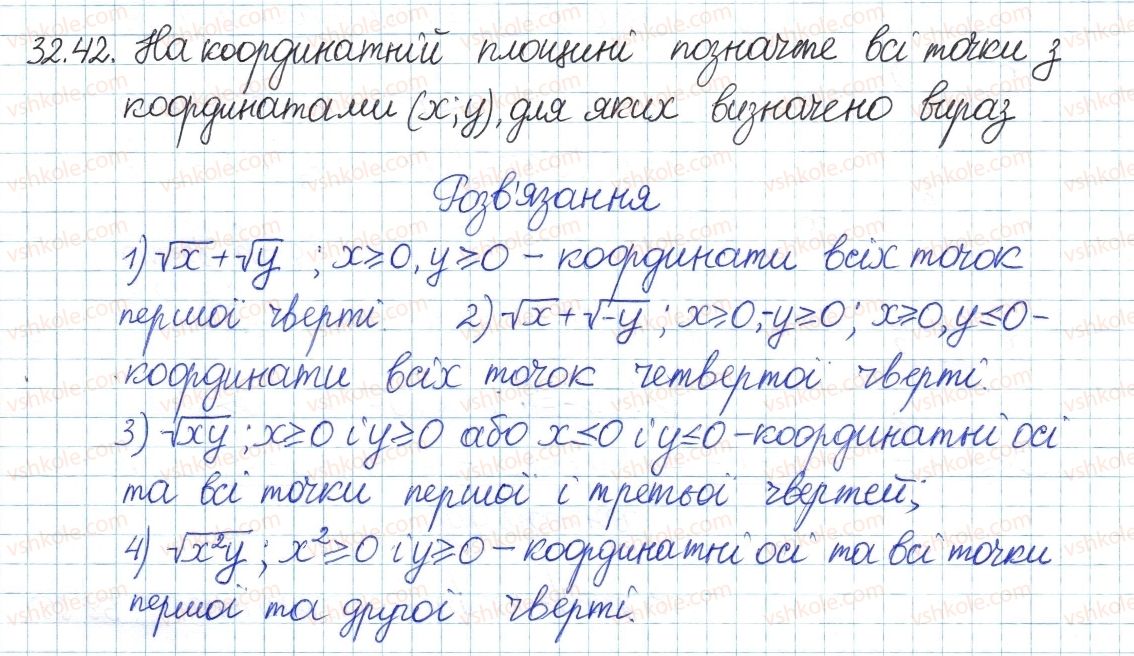 32.42. На координатній площині позначте всі точки з
координатами (x;y), для яких визначено вираз
Розв'язання
1) √x + √y ; x≥0, y≥0 – координати всіх точок
першої чверті. 2) √x + √-y ; x≥0, -y≥0; x≥0, y≤0 –
координати всіх точок четвертої чверті.
3) √xy ; x≥0 і y≥0 або x≤0 і y≤0 – координатні осі
та всі точки першої і третьої чвертей;
4) √x²y ; x²≥0 і y≥0 – координатні осі та всі точки
першої та другої чверті.